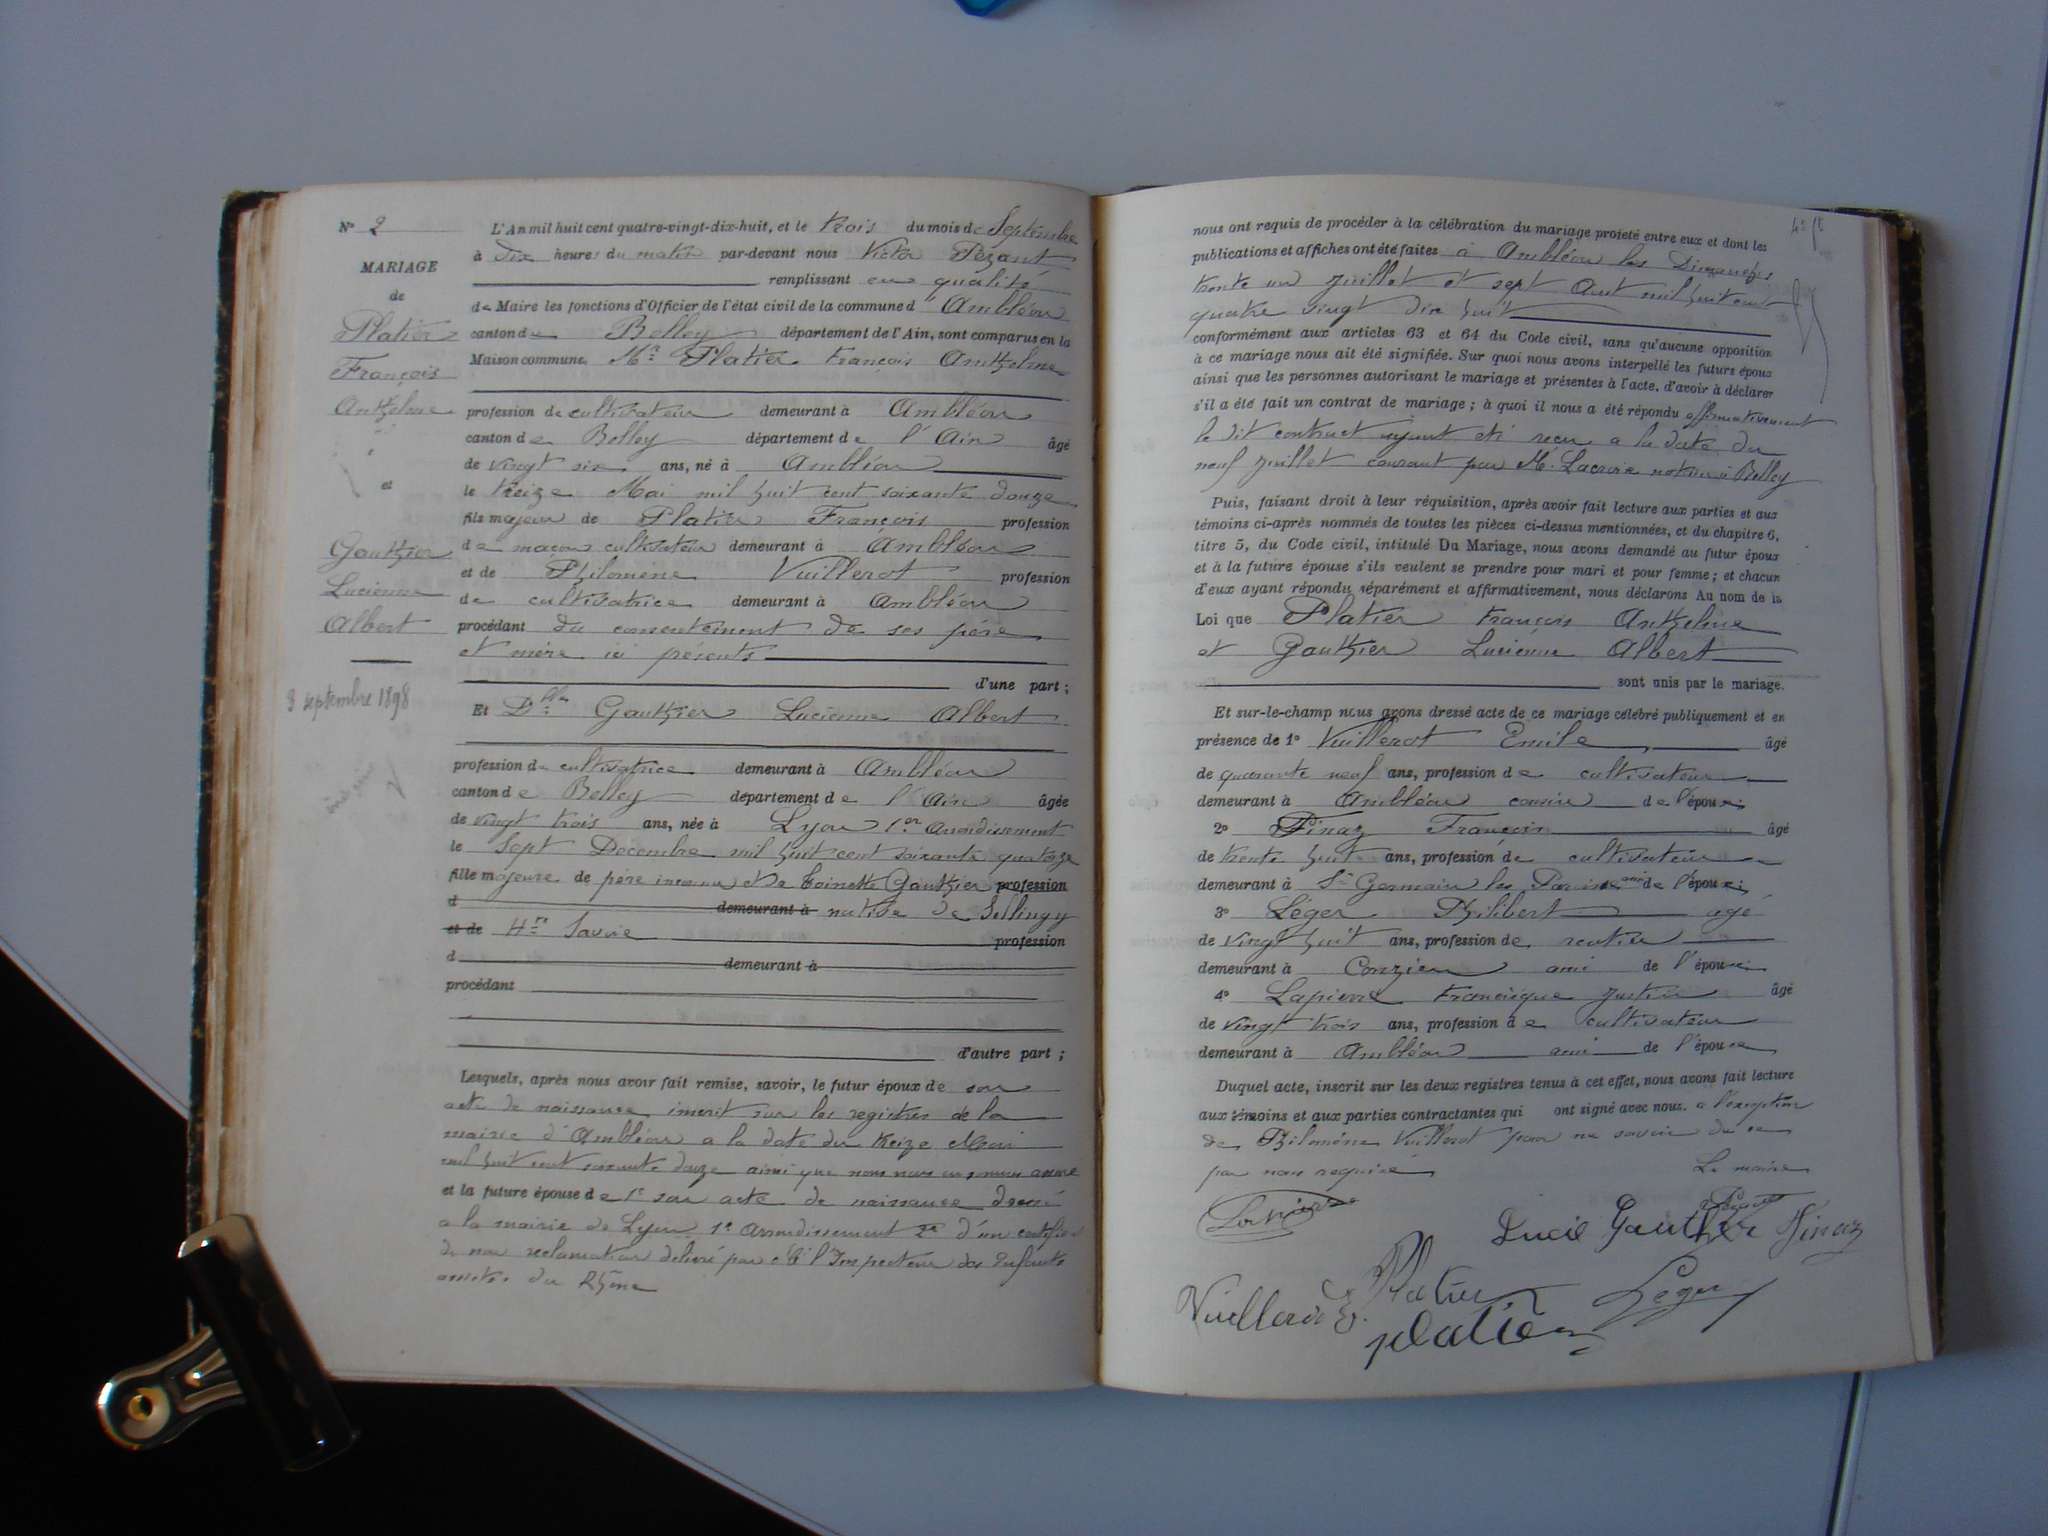 N° 2
MARIAGE
de
Platier
François
Anthelme
et
Gauthier
Lucienne
Albert
3 septembre 1898
L'An mil huit cent quatre-vingt-dix-huit, et le trois du mois de Septembre
à Dix heures du matin par-devant nous Victor Pezant
remplissant en qualité
de Maire les fonctions d'Officier de l'état civil de la commune d'Ambléon
canton de Belley département de l'Ain, sont comparus en la
Maison commune Mr Platier François Anthelme
profession de cultivateur demeurant à Ambléon
canton de Belley département de l'Ain âgé
de vingt six ans, né à Ambléon
le treize Mai mil huit cent soixante douze
fils majeur de Platier François profession
de maçon cultivateur demeurant à Ambléon
et de Philomène Vuillerot profession
de cultivatrice demeurant à Ambléon
procédant du consentement de ses père
et mère ici présents
d'une part ;
Et Dlle Gauthier Lucienne Albert
profession de cultivatrice demeurant à Ambléon
canton de Belley département de l'Ain âgée
de vingt trois ans, née à Lyon 1er arrondissement
le Sept Décembre mil huit cent soixante quatorze
fille majeure de père inconnu et de Toinette Gauthier profession
d demeurant à native de Sillingy
et de Hte Savoie profession
d demeurant à
procédant
d'autre part ;
Lesquels, après nous avoir fait remise, savoir, le futur époux de son
acte de naissance inscrit sur les registres de la
mairie d'Ambléon a la date du treize Mai
mil huit cent soixante douze ainsi que nous nous en sommes assuré
et la future épouse de 1° son acte de naissance dressé
a la mairie de Lyon 1er arrondissement 2° d'un certificat
de non reclamation délivré par Mr l'Inspecteur des Enfants
assistés du Rhône
nous ont requis de procéder à la célébration du mariage projeté entre eux et dont les
publications et affiches ont été faites à Ambléon les Dimanches
trente un Juillet et sept Aout mil huit cent
quatre vingt dix huit
conformément aux articles 63 et 64 du Code civil, sans qu'aucune opposition
à ce mariage nous ait été signifiée. Sur quoi nous avons interpellé les futurs époux
ainsi que les personnes autorisant le mariage et présentes à l'acte, d'avoir à déclarer
s'il a été fait un contrat de mariage ; à quoi il nous a été répondu affirmativement
le dit contract ayant eté recu a la date du
neuf Juillet courant par Me Lacroix notaire à Belley
Puis, faisant droit à leur réquisition, après avoir fait lecture aux parties et aux
témoins ci-après nommés de toutes les pièces ci-dessus mentionnées, et du chapitre 6,
titre 5, du Code civil, intitulé Du Mariage, nous avons demandé au futur époux
et à la future épouse s'ils veulent se prendre pour mari et pour femme ; et chacun
d'eux ayant répondu séparément et affirmativement, nous déclarons Au nom de la
Loi que Platier François Anthelme
et Gauthier Lucienne Albert
sont unis par le mariage.
Et sur-le-champ nous avons dressé acte de ce mariage célébré publiquement et en
présence de 1° Vuillerot Emile âgé
de quarante neuf ans, profession de cultivateur
demeurant à Ambléon cousin de l'époux
2° Pinaz François âgé
de trente huit ans, profession de cultivateur
demeurant à St Germain les Paroisses ami de l'époux
3° Léger Philibert agé
de vingt huit ans, profession de rentier
demeurant à Conzieu ami de l'épouse
4° Lapierre Francisque Justin âgé
de vingt trois ans, profession de cultivateur
demeurant à Ambléon ami de l'épouse
Duquel acte, inscrit sur les deux registres tenus à cet effet, nous avons fait lecture
aux témoins et aux parties contractantes qui ont signé avec nous. a l'exeption
de Philomène Vuillerot pour ne savoir de ce
par nous requise
Le maire
Pezant
Lucie Gauthier Pinaz
Platier Léger
Vuillerot E.
platier